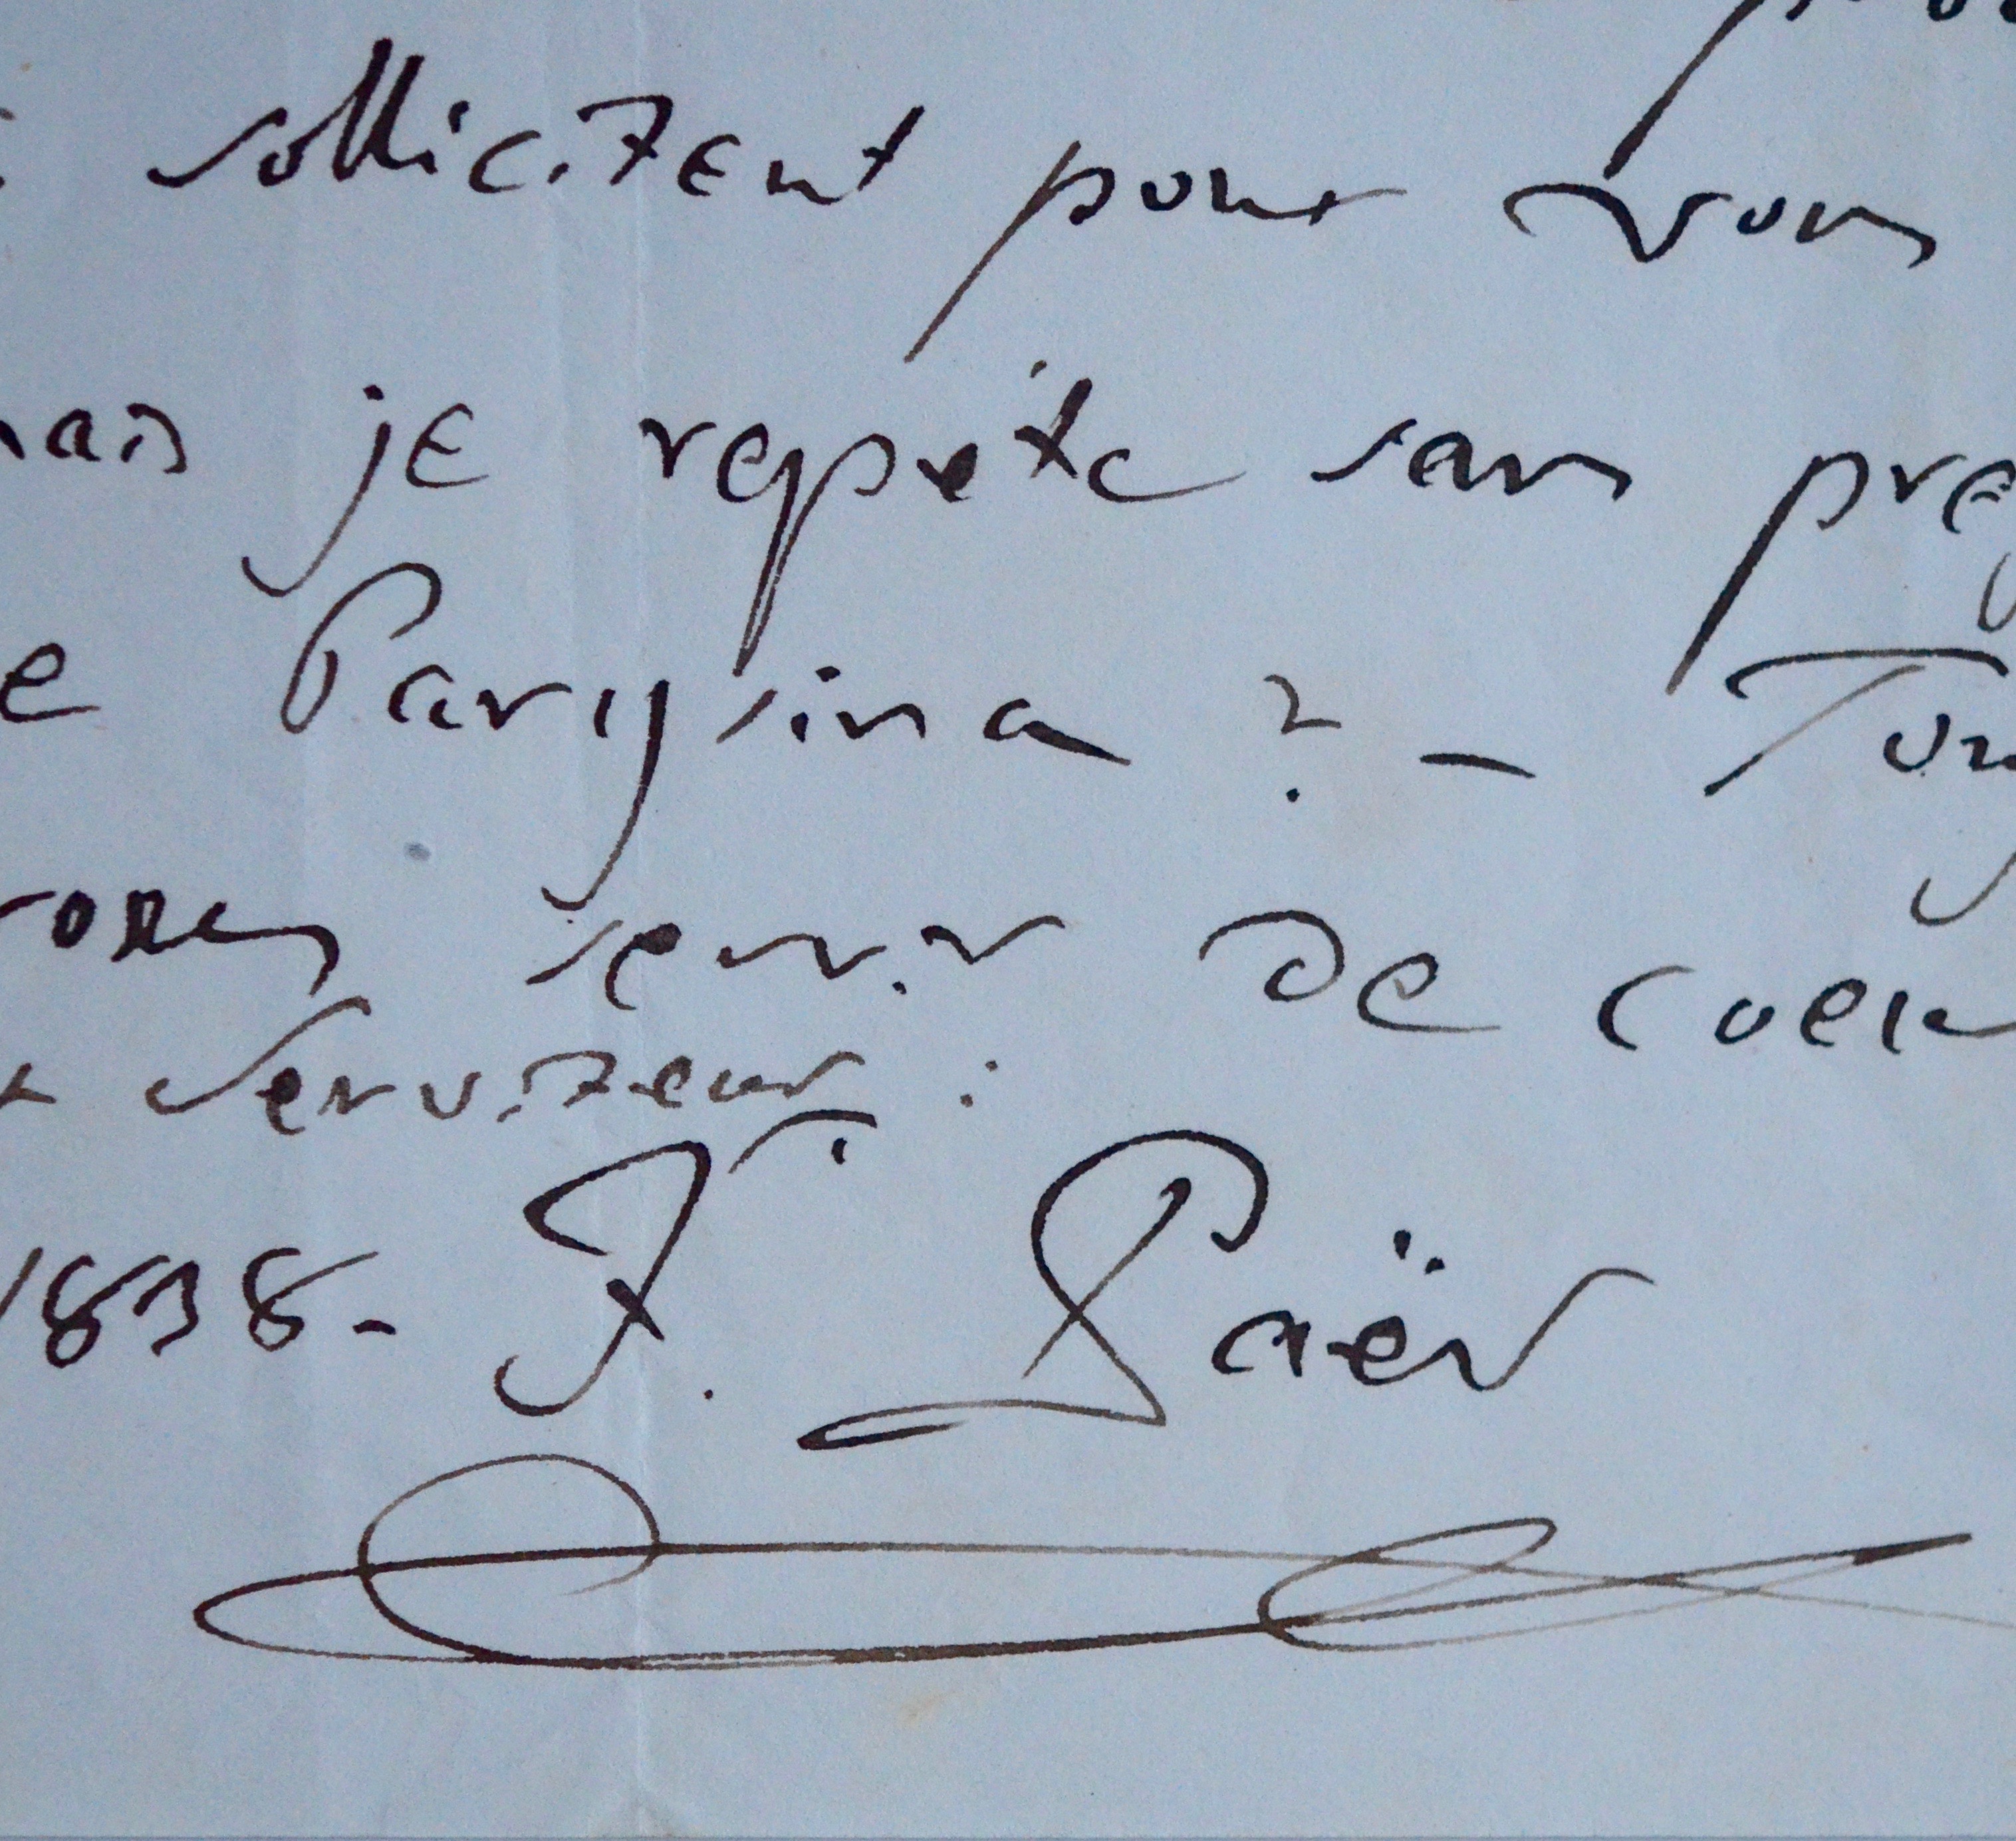 sollicitent pour vous
mais je repète sans pre
e Parysina ? - Touj
servir de coeur
serviteur :
1838 - F. Paër